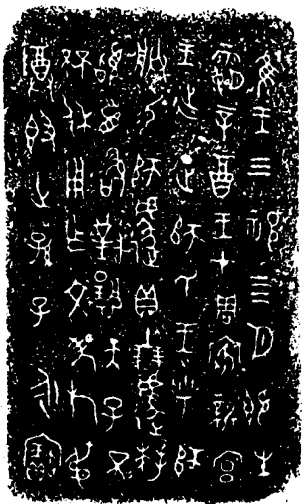 隹王三祀亖月既生
霸辛酉王才周客新宮
王征正師氏王乎師
朕易師遽貝十朋遽拜
𩒨首敢對揚天子不
𠀠休用乍文考旄弔
尊𣪘世孫子永寶